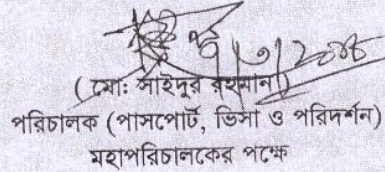 (মো: সাইদুর রহমান)
পরিচালক (পাসপোর্ট, ভিসা ও পরিদর্শন)
মহাপরিচালকের পক্ষে